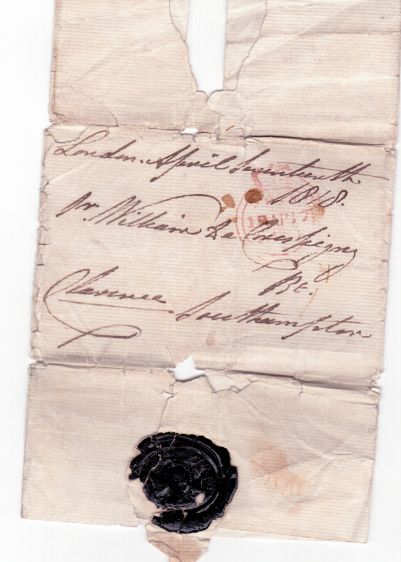 London. April Seventeenth
1818.
Sr. William De Crespigny
Bt.
Southampton
Clarence